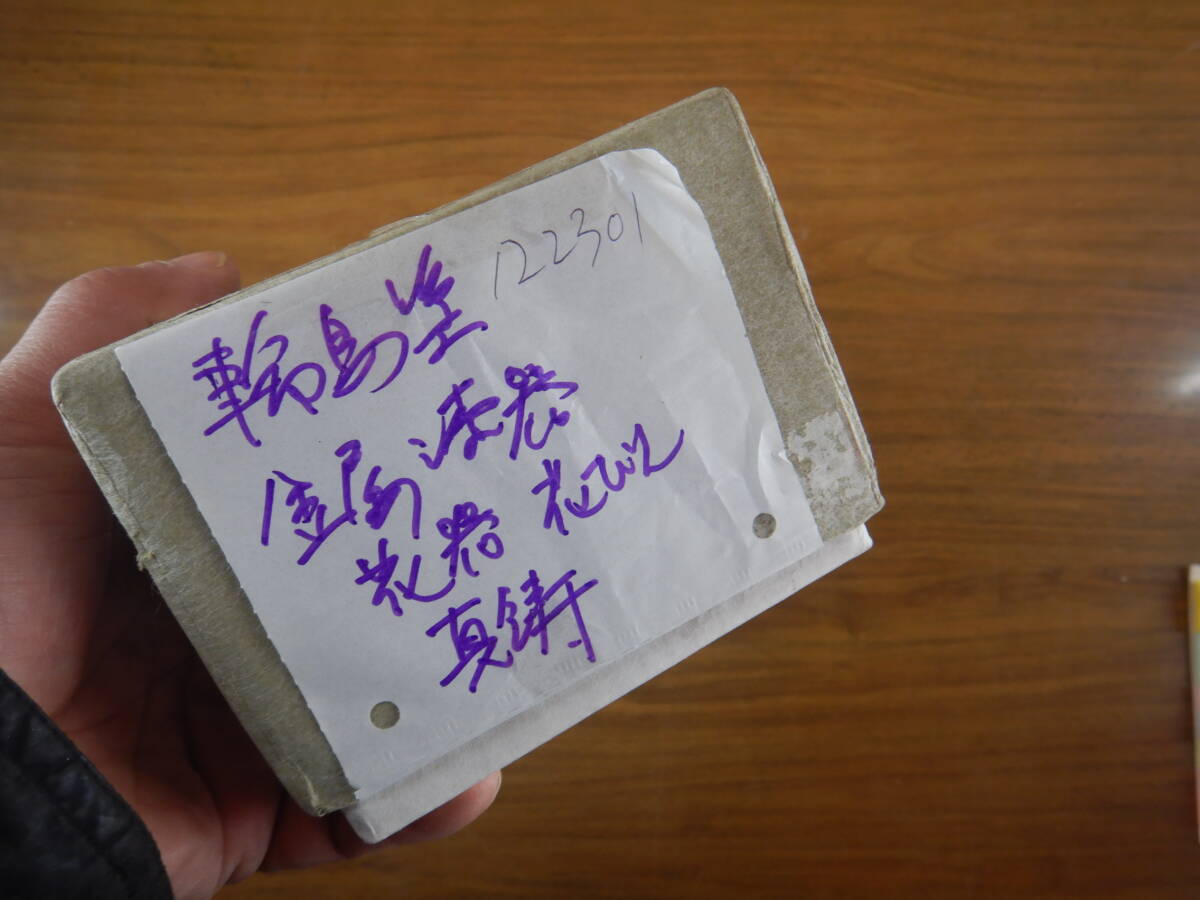 122301
輪島塗
金属漆器
花器 花びん
真鋳